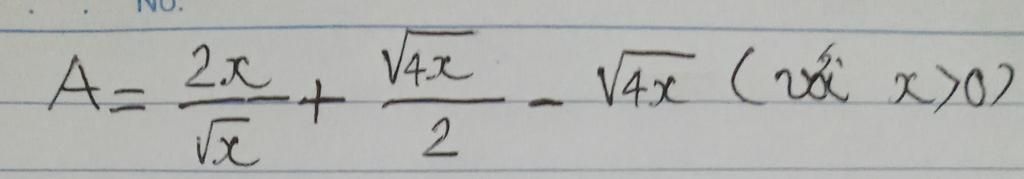 No.
A = \frac{2x}{\sqrt{x}} + \frac{\sqrt{4x}}{2} - \sqrt{4x} (với x>0)